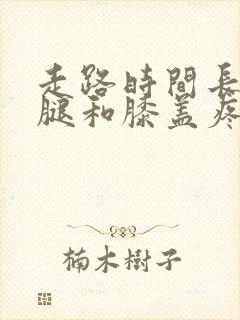 走路時間長
腿和膝盖疼
楠木樹子